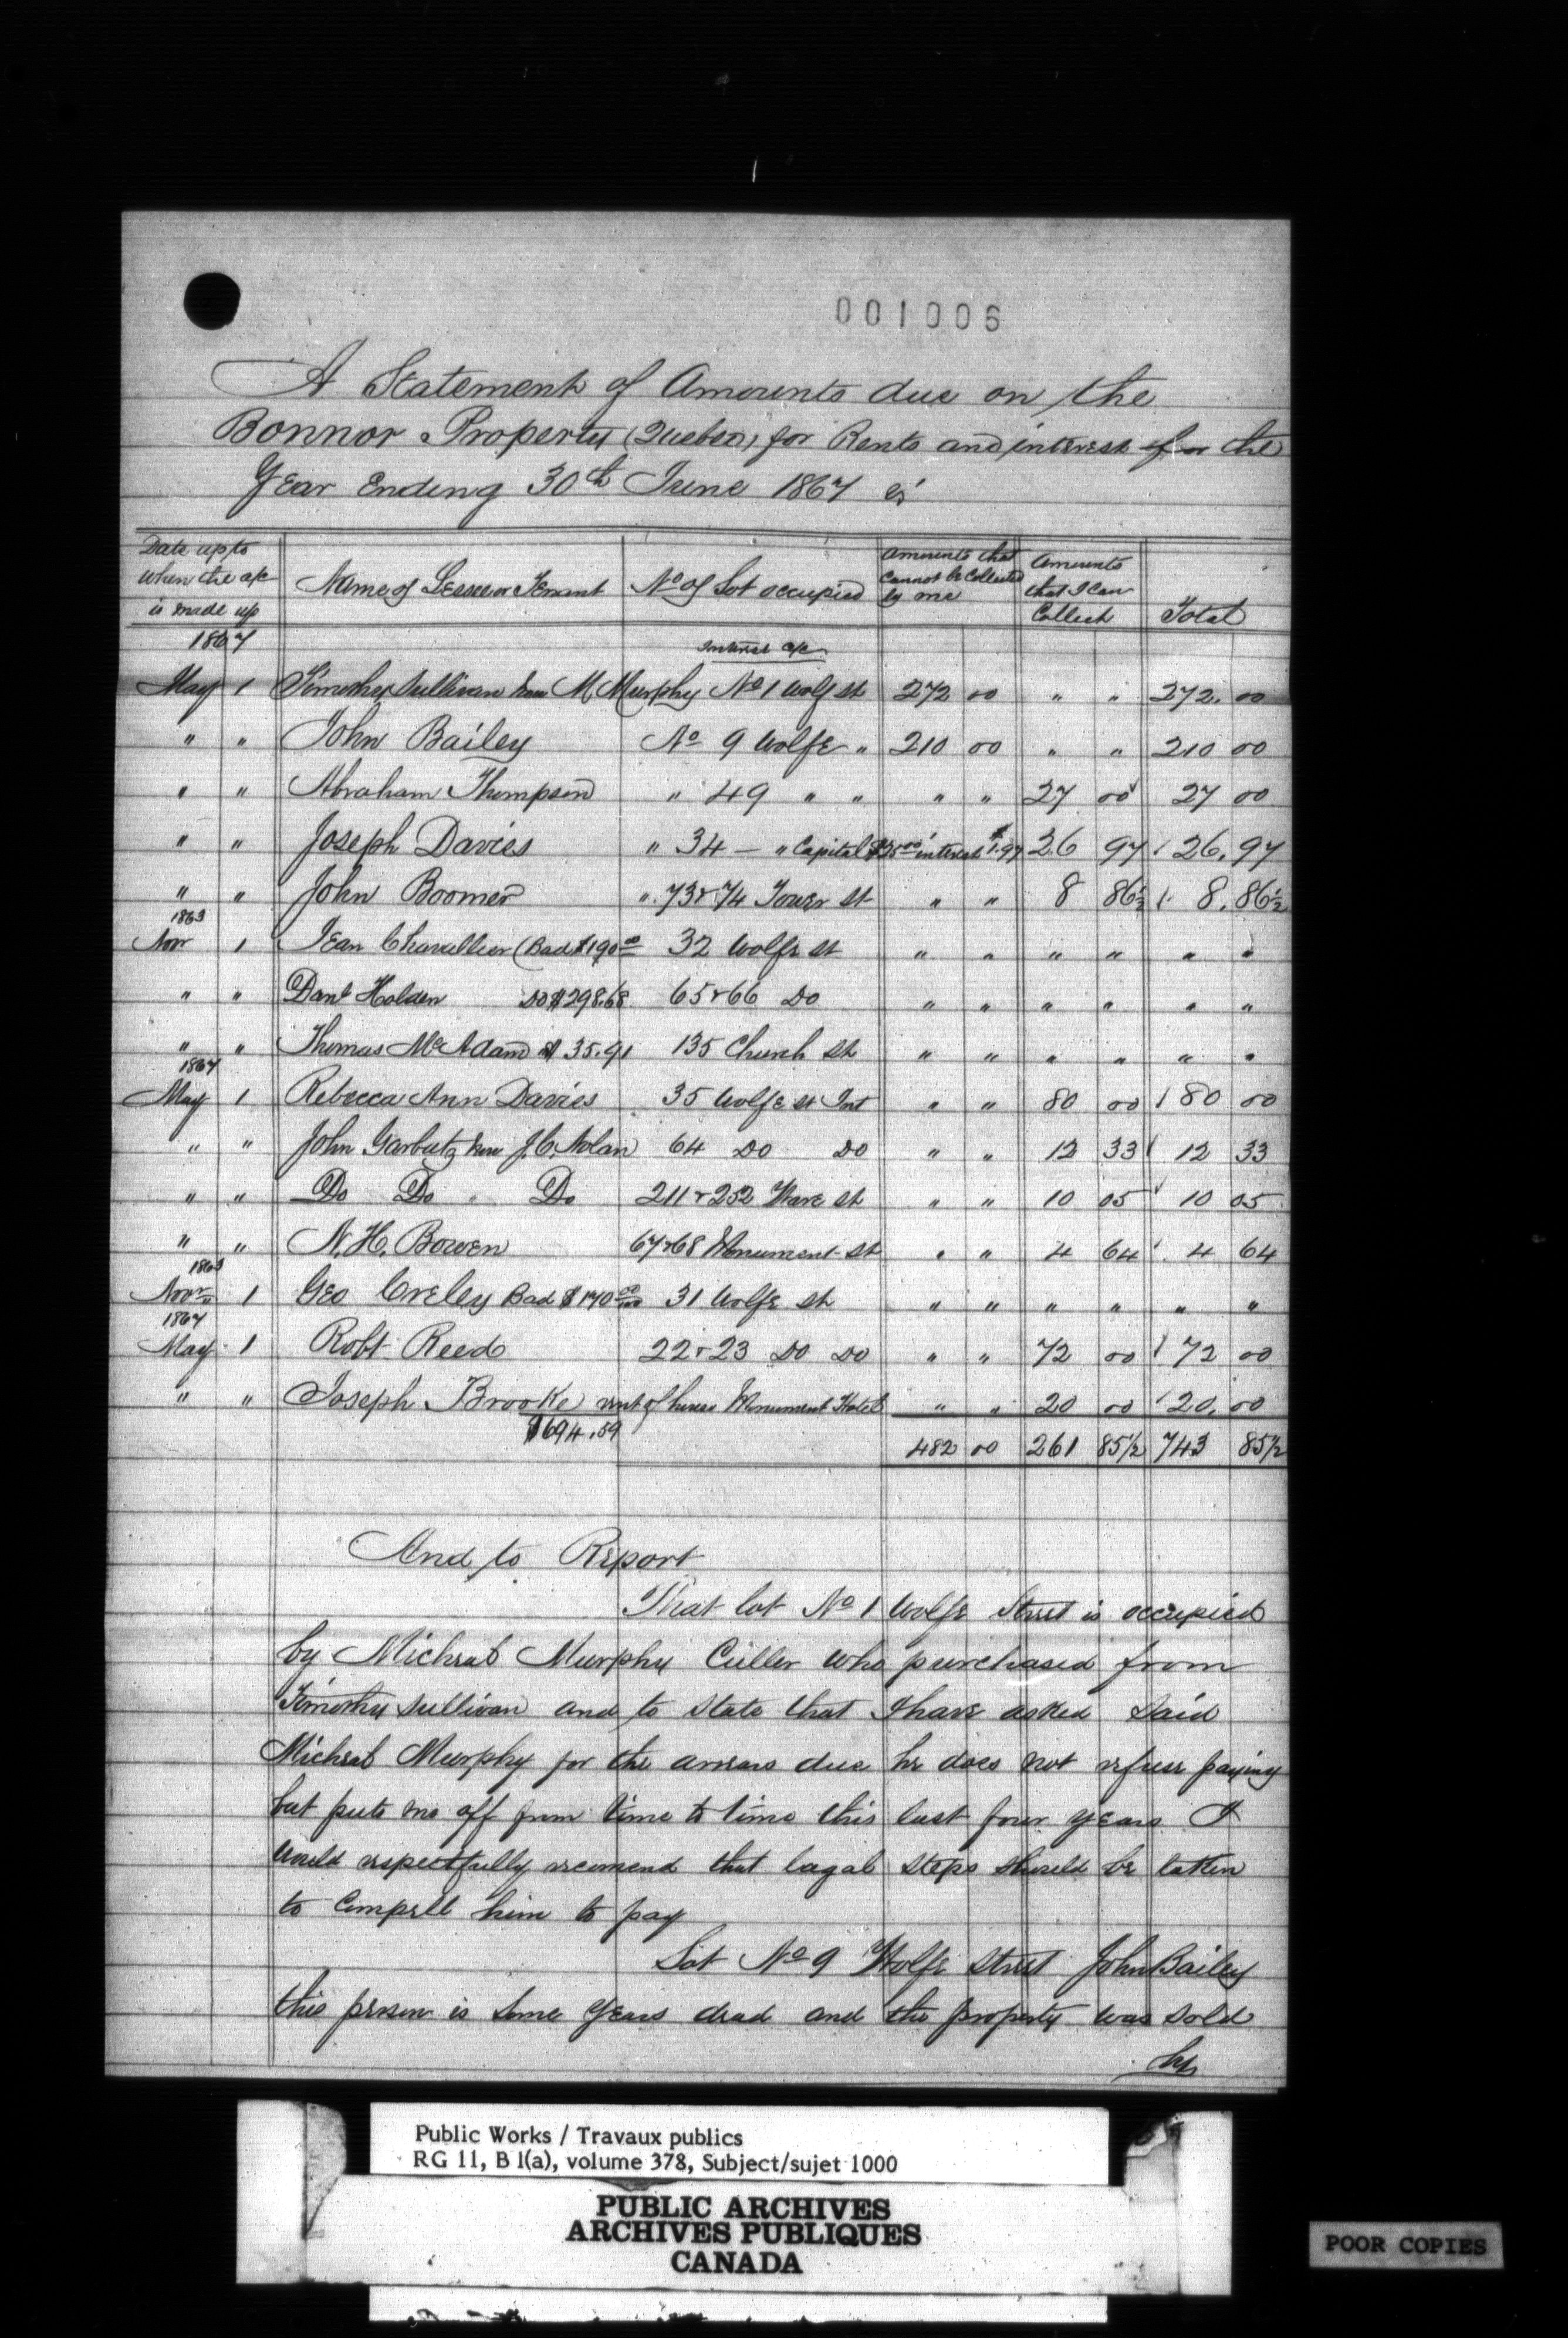 001006
A Statement of Amounts due on the
Bonnor Property (Quebec) for Rents and interest for the
Year Ending 30th June 1867
Date up to when the a/c is made up | Name of Lessee or Tenant | No of Lot occupied | Amounts that Cannot be Collected by me | Amounts that I can Collect | Total
1867 Interest a/c
May 1 Timothey Sullivan now M Murphy No 1 Wolf st 272 00 " " 272. 00
" " John Bailey No 9 Wolfe " 210 00 " " 210 00
" " Abraham Thompson " 49 " " " " 27 00 27 00
" " Joseph Davies " 34 — " Capital $25 00 interest $1.97 26 97 26.97
" " John Boomer " 73 & 74 Tower St " " 8 86½ 8.86½
1863
Novr 1 Jean (Bad $190 00 32 Wolfe St " " " " " "
" " Danl Holden Do $298.68 65 & 66 Do " " " " " "
" " Thomas McAdam $ 35.91 135 Church St " " " " " "
1867
May 1 Rebecca Ann Davies 35 Wolfe st Int " " 80 00 80 00
" " John now J.C. Nolan 64 Do Do " " 12 33 12 33
" " Do Do " Do 211 & 252 St " " 10 05 10 05
" " N. H. Bowen 67 & 68 Monument St " " 4 64 4 64
1863
Novr 1 Geo Creley Bad $170 00 31 Wolfe St " " " " " "
1867
May 1 Robt Reed 22 & 23 Do Do " " 72 00 72 00
" " Joseph Brooke rent of house Monument Hotel " " 20 00 20.00
$694.59 482 00 261 85½ 743 85½
And to Report
That lot No 1 Wolfe Street is occupied
by Micheal Murphy Culler who purchased from
Timothy Sullivan and to state that I have asked said
Micheal Murphy for the arrears due he does not refuse paying
but puts me off from time to time this last four years I
would respectfully recomend that legal steps should be taken
to Compell him to pay
Lot No 9 Wolfe Street John Bailey
this person is some years dead and the property was sold
by
Public Works / Travaux publics
RG 11, B 1(a), volume 378, Subject/sujet 1000
PUBLIC ARCHIVES
ARCHIVES PUBLIQUES
CANADA
POOR COPIES